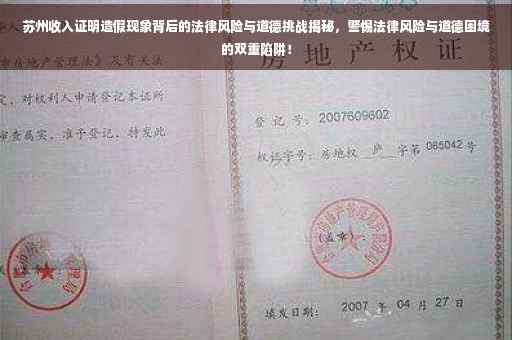 苏州收入证明造假现象背后的法律风险与道德挑战揭秘，警惕法律风险与道德困境
的双重陷阱！
房地产管理法》及有关法
定，对权利人申请登记本证所
审查属实，准予登记，特发此
房地产权证
登 记 号：2007609602
权证字号：房地权 庐 字第 065042 号
（盖章）：
填发日期： 2007 年 04 月 27 日